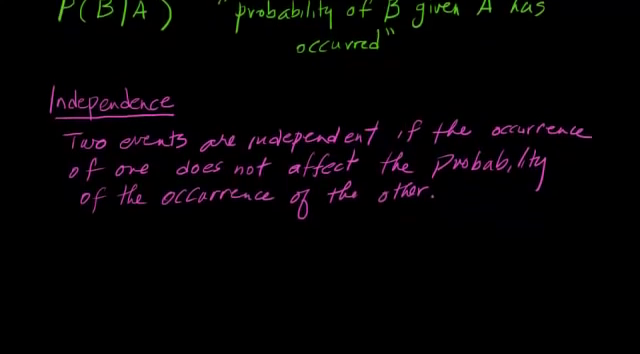 P(B/A) "probability of B given A has
occurred"
Independence
Two events are independent if the occurrence
of one does not affect the probability
of the occurrence of the other.